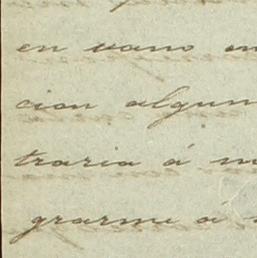 en vano en
cion algun
traria á m
grarme á